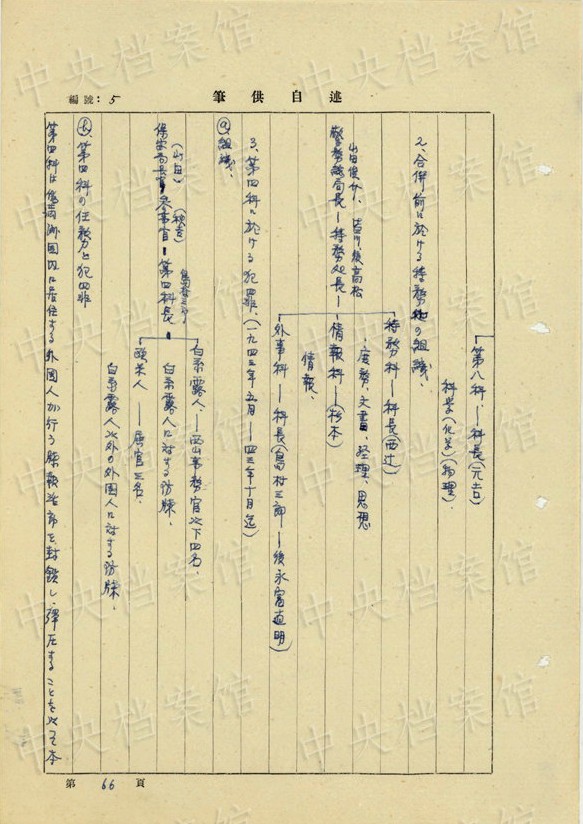 編號：5
筆供自述
第八科——科長(元吉)
科学(化学)(物理)、
2、合併前に於ける特務処の組織、
特務科——科長(西辻)
庶務、文書、経理、思想
警務総局長——特務処長——情報科——(杉本)
山田俊介、皆川、後高松
情報、
外事科——科長(島村三郎——後永富直明)
3、第四科に於ける犯罪、(一九四三年五月——四三年十月迄)
ⓐ組織、
白系露人、——西山事務官以下四名、
保安局長——参事官——第四科長
(山田)(秋吉)島村三郎
白系露人に対する防牒、
欧美人——属官三名、
白系露人以外の外国人に対する防牒、
ⓑ第四科の任務と犯罪
第四科は偽満洲国内に居住する外国人が行う牒報活動を封鎖し、弾圧することを以て本
第66頁
中央档案馆